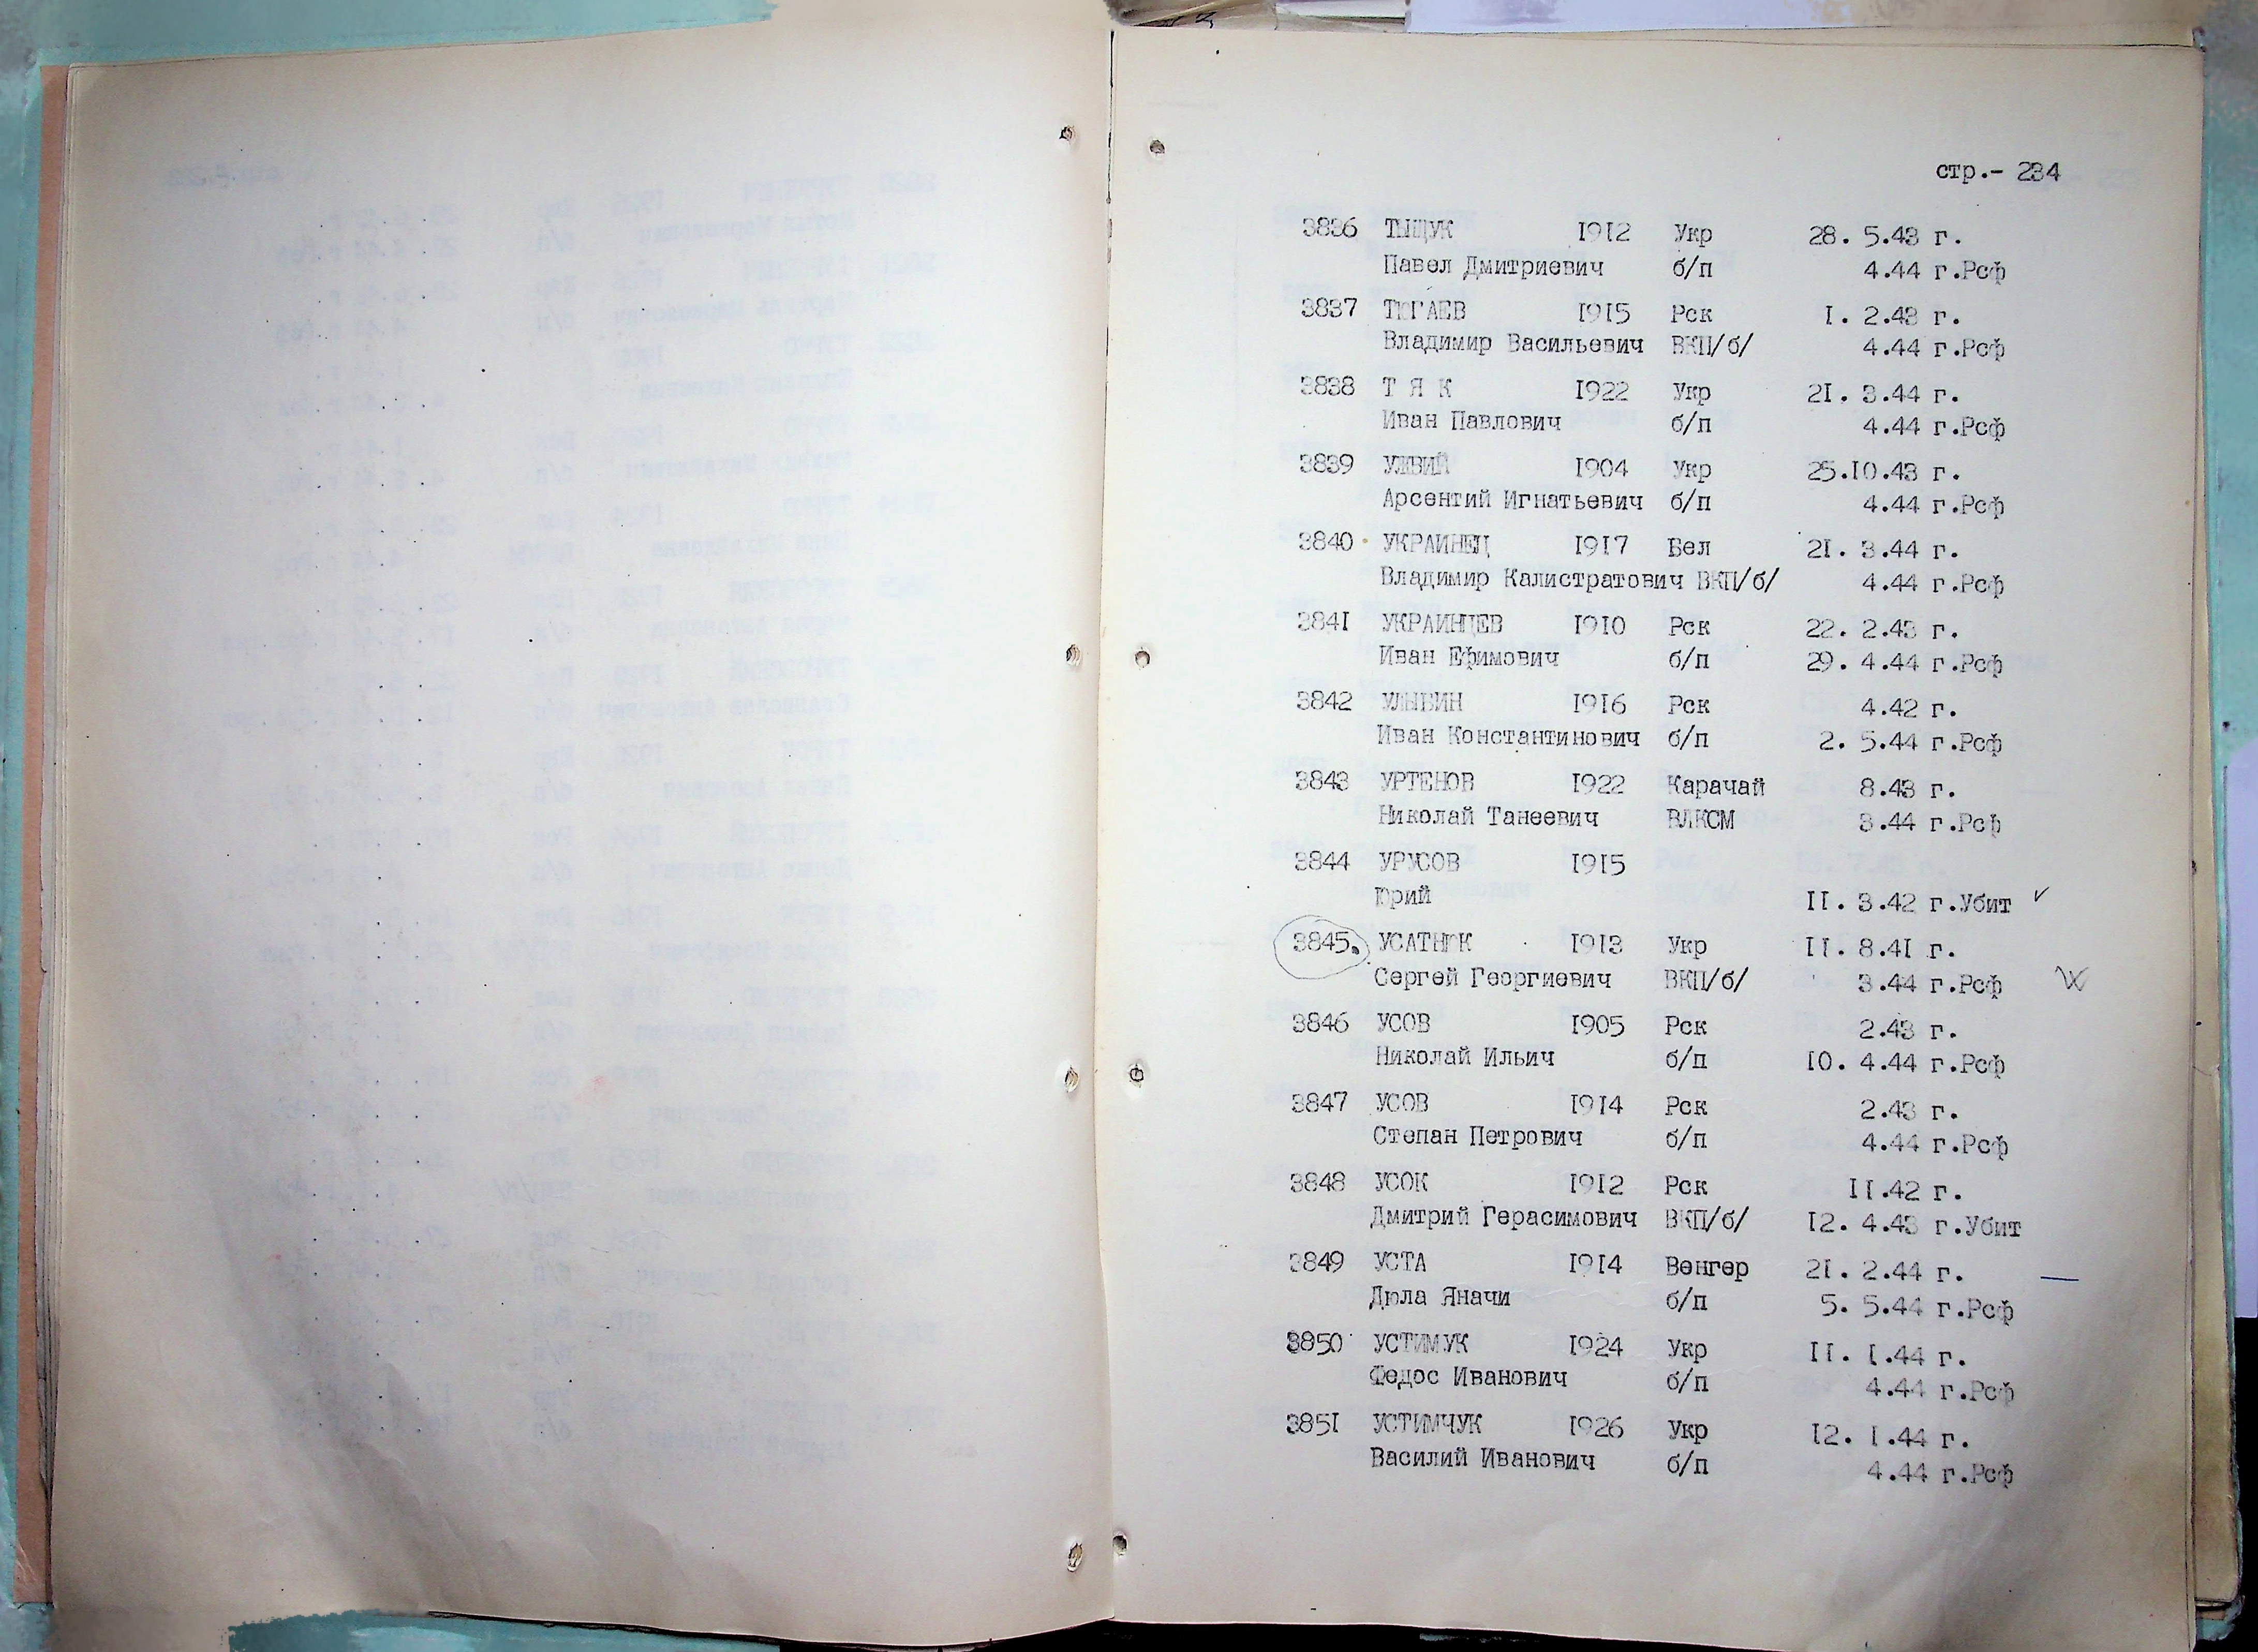 стр.- 234
3836 ТЫЩУК 1912 Укр 28. 5.43 г.
Павел Дмитриевич б/п 4.44 г.Рсф
3837 ТЮГАЕВ 1915 Рск I. 2.43 г.
Владимир Васильевич ВКП/б/ 4.44 г.Рсф
3838 Т Я К 1922 Укр 2I. 3.44 г.
Иван Павлович б/п 4.44 г.Рсф
3839 УЖВИЙ 1904 Укр 25.I0.43 г.
Арсентий Игнатьевич б/п 4.44 г.Рсф
3840 УКРАИНЕЦ 1917 Бел 2I. 3.44 г.
Владимир Калистратович ВКП/б/ 4.44 г.Рсф
384I УКРАИНЦЕВ 1910 Рск 22. 2.43 г.
Иван Ефимович б/п 29. 4.44 г.Рсф
3842 УЛЫБИН 1916 Рск 4.42 г.
Иван Константинович б/п 2. 5.44 г.Рсф
3843 УРТЕНОВ 1922 Карачай 8.43 г.
Николай Танеевич ВЛКСМ 3.44 г.Рсф
3844 УРУСОВ 1915
Юрий II. 3.42 г.Убит
3845. УСАТНЮК 1913 Укр II. 8.4I г.
Сергей Георгиевич ВКП/б/ 3.44 г.Рсф
3846 УСОВ 1905 Рск 2.43 г.
Николай Ильич б/п I0. 4.44 г.Рсф
3847 УСОВ 1914 Рск 2.43 г.
Степан Петрович б/п 4.44 г.Рсф
3848 УСОК 1912 Рск II.42 г.
Дмитрий Герасимович ВКП/б/ I2. 4.43 г.Убит
3849 УСТА 1914 Венгер 2I. 2.44 г.
Дюла Яначи б/п 5. 5.44 г.Рсф
3850 УСТИМУК 1924 Укр II. I.44 г.
Федос Иванович б/п 4.44 г.Рсф
385I УСТИМЧУК 1926 Укр I2. I.44 г.
Василий Иванович б/п 4.44 г.Рсф